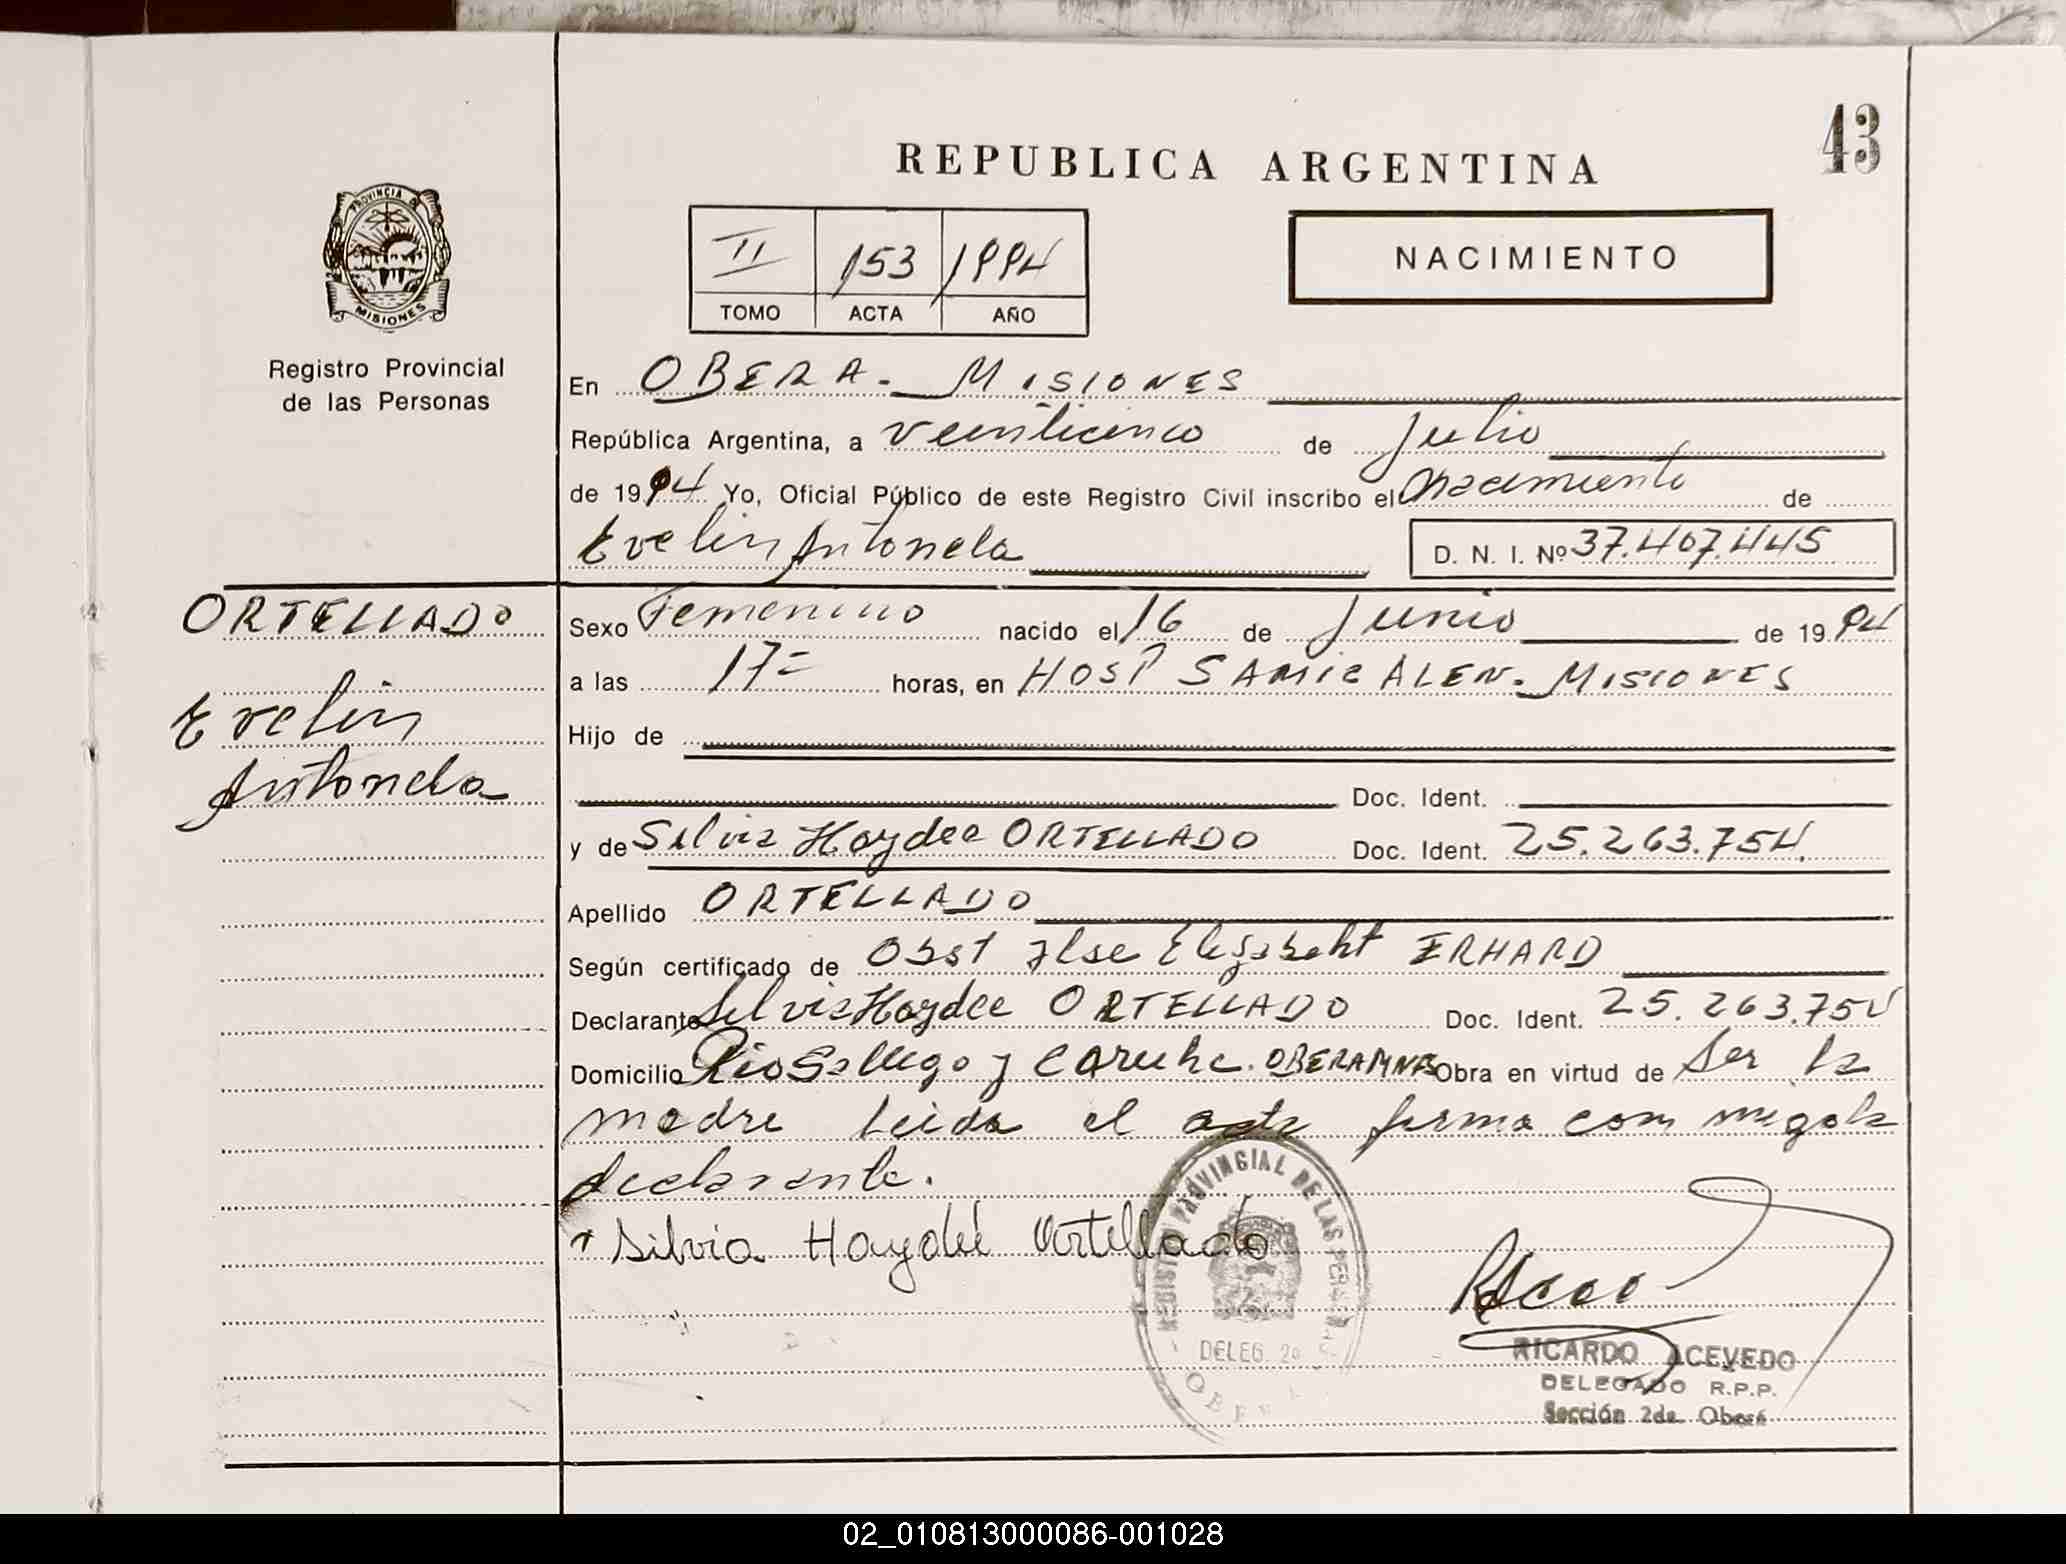 43
REPUBLICA ARGENTINA
PROVINCIA DE
MISIONES
Registro Provincial
de las Personas
II 153 1994
TOMO ACTA AÑO
NACIMIENTO
En OBERA - MISIONES
República Argentina, a veinticinco de Julio
de 1994 Yo, Oficial Público de este Registro Civil inscribo el Nacimiento de
Evelin Antonela D. N. I. Nº 37.407.445
ORTELLADO
Evelin
Antonela
Sexo Femenino nacido el 16 de Junio de 1994
a las 17= horas, en HOSP SAMIC ALEN - MISIONES
Hijo de
Doc. Ident.
y de Silvia Haydee ORTELLADO Doc. Ident. 25.263.754
Apellido ORTELLADO
Según certificado de Obst Ilse Elizabeht ERHARD
Declarante Silvia Haydee ORTELLADO Doc. Ident. 25.263.754
Domicilio Rio Gallego y OBERA MNES Obra en virtud de Ser la
madre Leida el acta firma con migo la
declarante.
Silvia Haydeé Ortellado
REGISTRO PROVINCIAL DE LAS PERSONAS
DELEG. 2a
OBERA
RICARDO ACEVEDO
DELEGADO R.P.P.
Sección 2da. Oberá
02_010813000086-001028